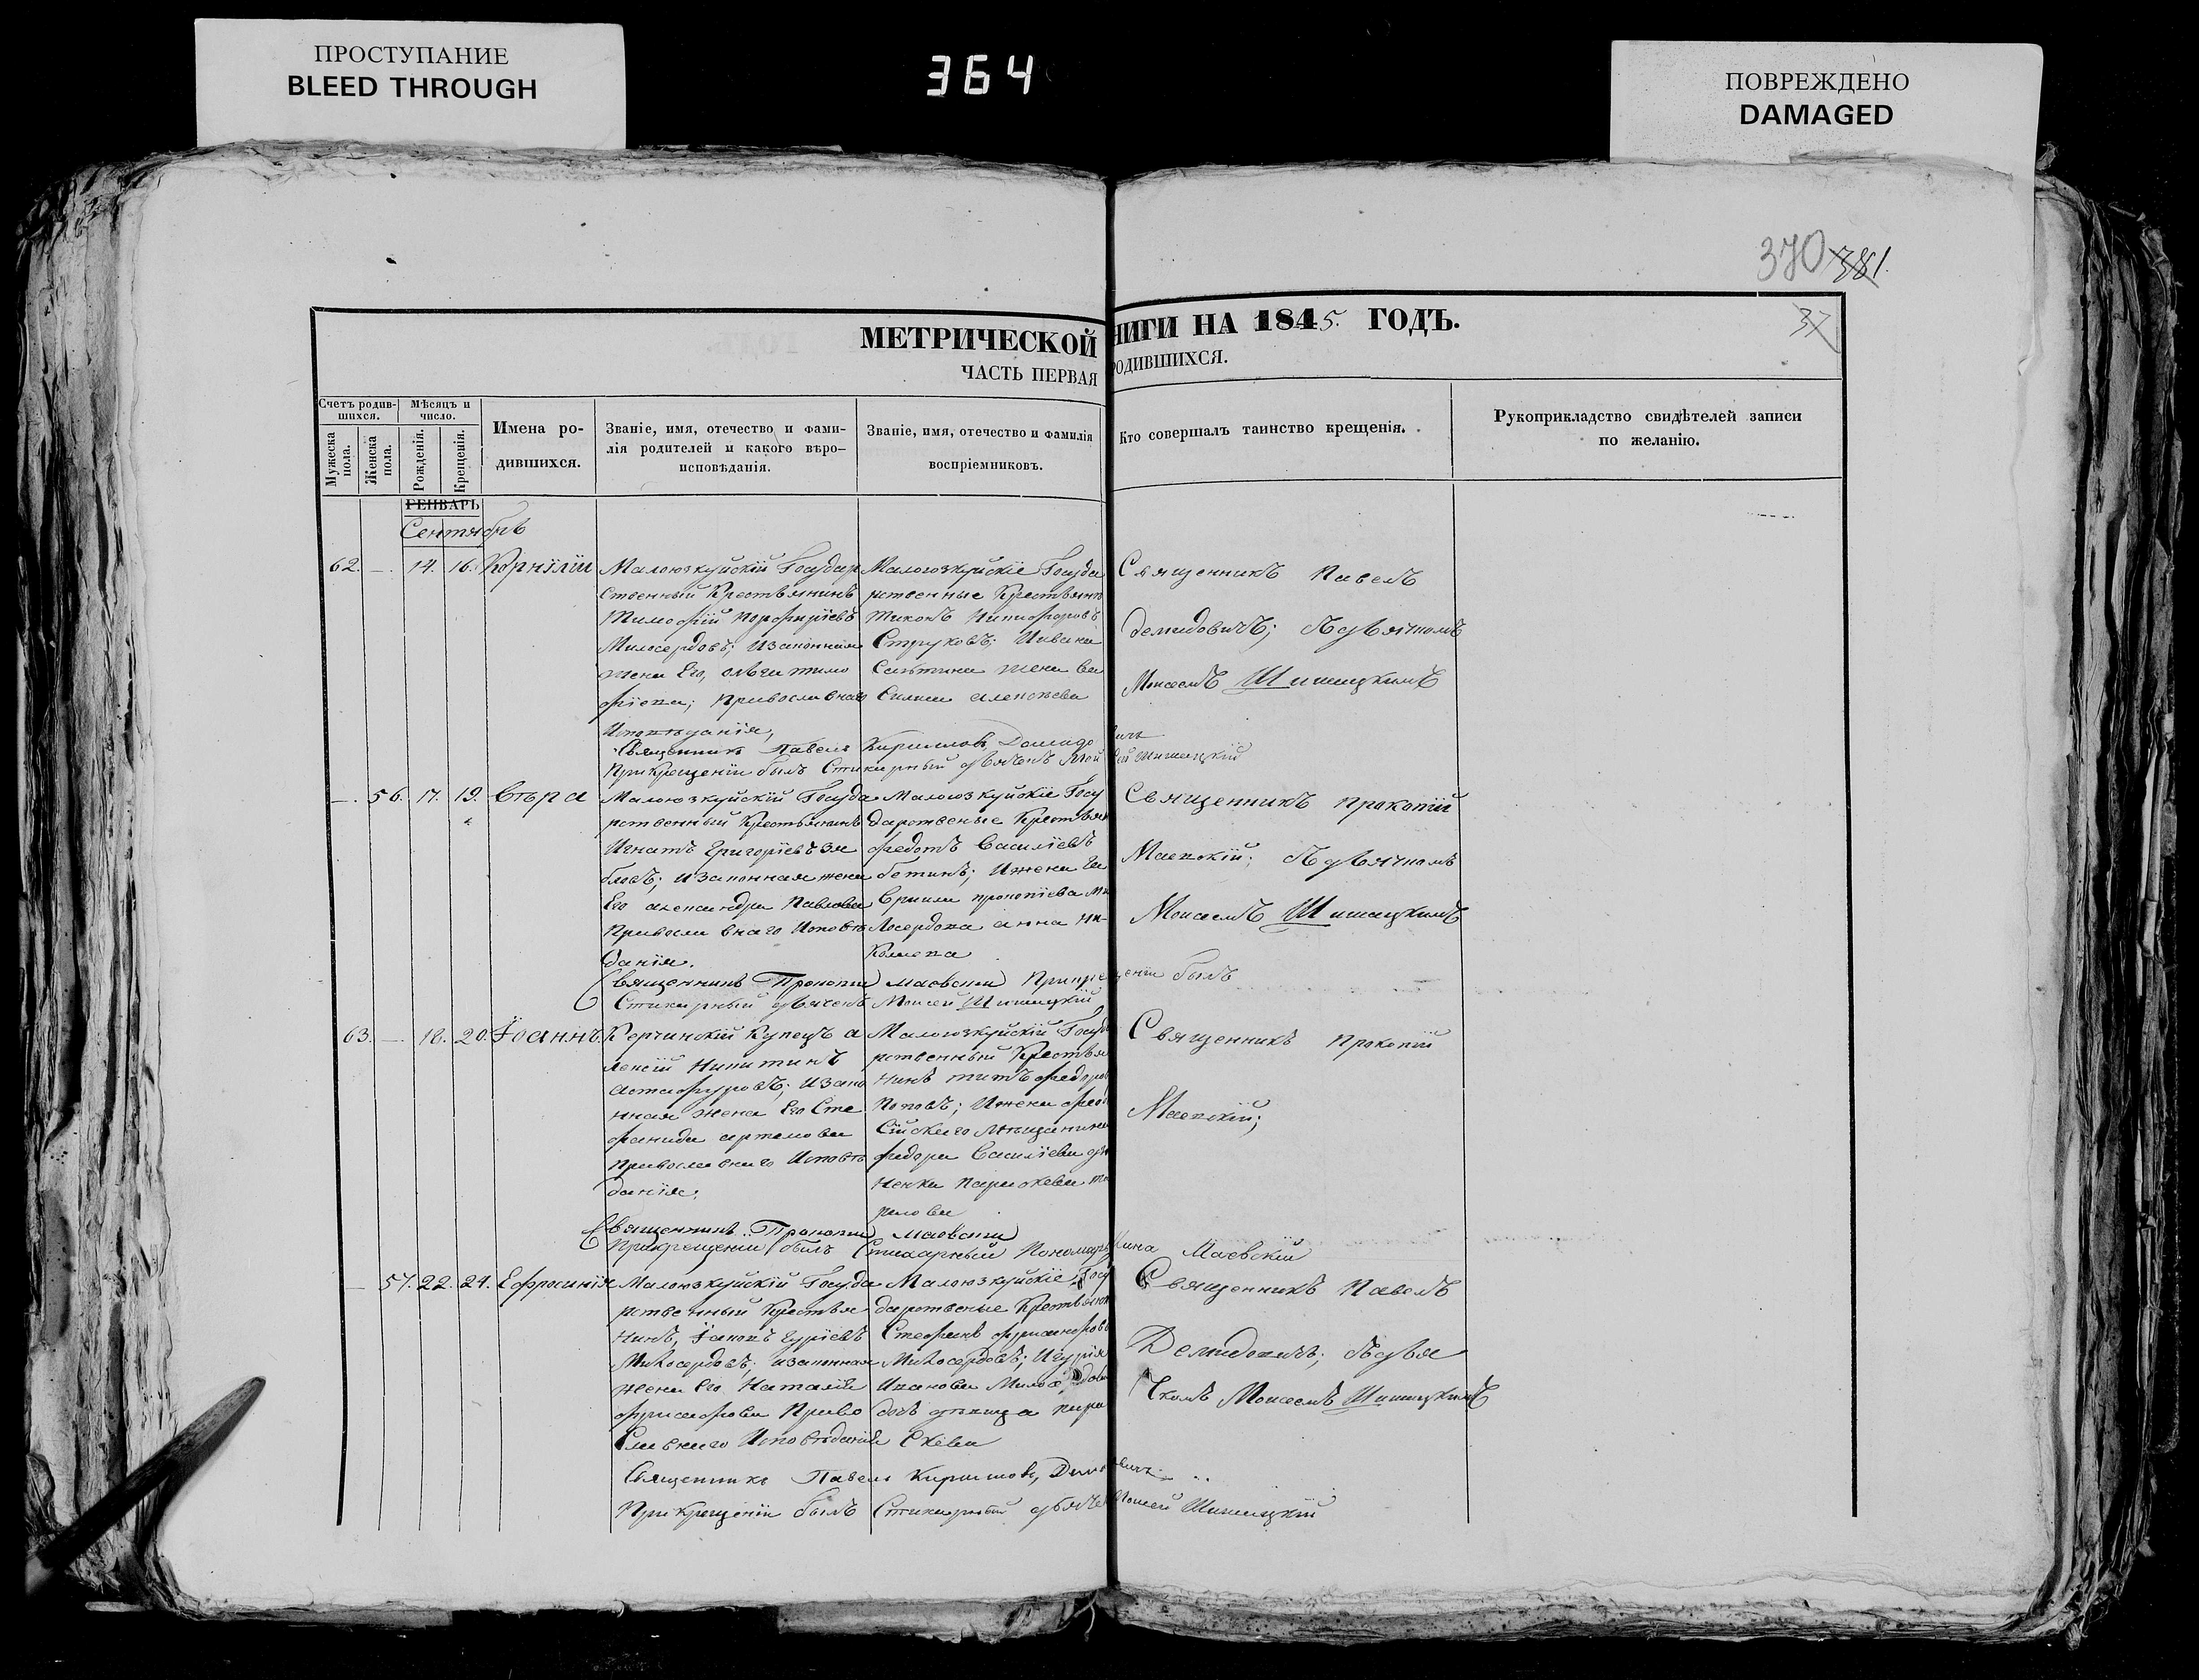 ПРОСТУПАНИЕ
BLEED THROUGH
364
ПОВРЕЖДЕНО
DAMAGED
370 381.
37
МЕТРИЧЕСКОЙ
НИГИ НА 1845. ГОДЪ.
ЧАСТЬ ПЕРВАЯ
РОДИВШИХСЯ.
Счетъ родив-
шихся.
Мужеска
пола.
Женска
пола.
Мѣсяцъ и
число.
Рожденія.
Крещенія.
Имена ро-
дившихся.
Званіе, имя, отечество и фами-
лія родителей и какого вѣро-
исповѣданія.
Званіе, имя, отечество и фамилія
воспріемниковъ.
Кто совершалъ таинство крещенія.
Рукоприкладство свидѣтелей записи
по желанію.
ГЕНВАРЬ
Сентябрь
62. — 14. 16. Корнилій
Малоюзкуйскій Государ
ственный Крестьянинъ
Тимофій Порфиріевъ
Милосердовъ; Изаконная
жена Его, Ольга Тимо
фіева; Православнаго
Исповѣданія,
Малоюзкуйскіе Госуда
рственные Крестьяне
Тихонъ Никифоровъ
Струковъ; Ивана
жена Ва
Алексѣева
Священникъ Павелъ
Демидовичъ; Съ дьячкомъ
Моисеемъ Шишацкимъ
Священникъ Павелъ Кирилловъ Демидовичъ
При Крещеніи былъ Стихарный дьячекъ Мойсей Шишацкій
— 56. 17. 19. Вѣра
Малоюзкуйскій Госуда
рственный Крестьянинъ
Игнатъ Григоріевъ Зя
бловъ; Изаконная жена
Его Александра Павлова
Православнаго Исповѣ
данія.
Малоюзкуйскіе Госу
дарственые Крестьян
Федотъ Василіевъ
бетинъ; Ижена Га
Прокопіева Ми
лосердова Анна Ни-
Священникъ Прокопій
Маевскій; Съ дьячкомъ
Моисеемъ Шишацкимъ
Священникъ Прокопій Маевскій При Крещеніи былъ
Стихарный дьячекъ Моисей Шишацкій
63. — 18. 20. Іоаннъ.
Керчинскій Купецъ А
лексій Никитинъ
Астафуровъ; Изако
нная жена Его Сте
фанида Артемова
Православнаго Исповѣ
данія.
Малоюзкуйскій Госуда
рственный Крестья
нинъ Титъ Федоров
Поповъ; Ижена Фео
сійскаго Мѣщанина
Федора Василіева
Параскева
Священникъ Прокопій
Маевскій;
Священникъ Прокопій Маевскій
При крещеніи былъ Стихарный Пономарь Маевскій
— 57. 22. 24. Ефросинія
Малоюзкуйскій Госуда
рственный Крестья
нинъ, Іаковъ Гуріевъ
Милосердовъ; Изаконная
жена Его Наталія
Православнаго Исповѣданія
Малоюзкуйскіе Госу
дарственые Крестьян
Стефанъ
Милосердовъ; И Гурія
Иванова Милосердова
дочь дѣвица Пара
скева
Священникъ Павелъ
Демидовичъ; Съ дья
чкомъ Моисеемъ Шишацкимъ
Священникъ Павелъ Кирилловъ, Демидовичъ
При Крещеніи былъ Стихарный дьячекъ Моисей Шишацкій